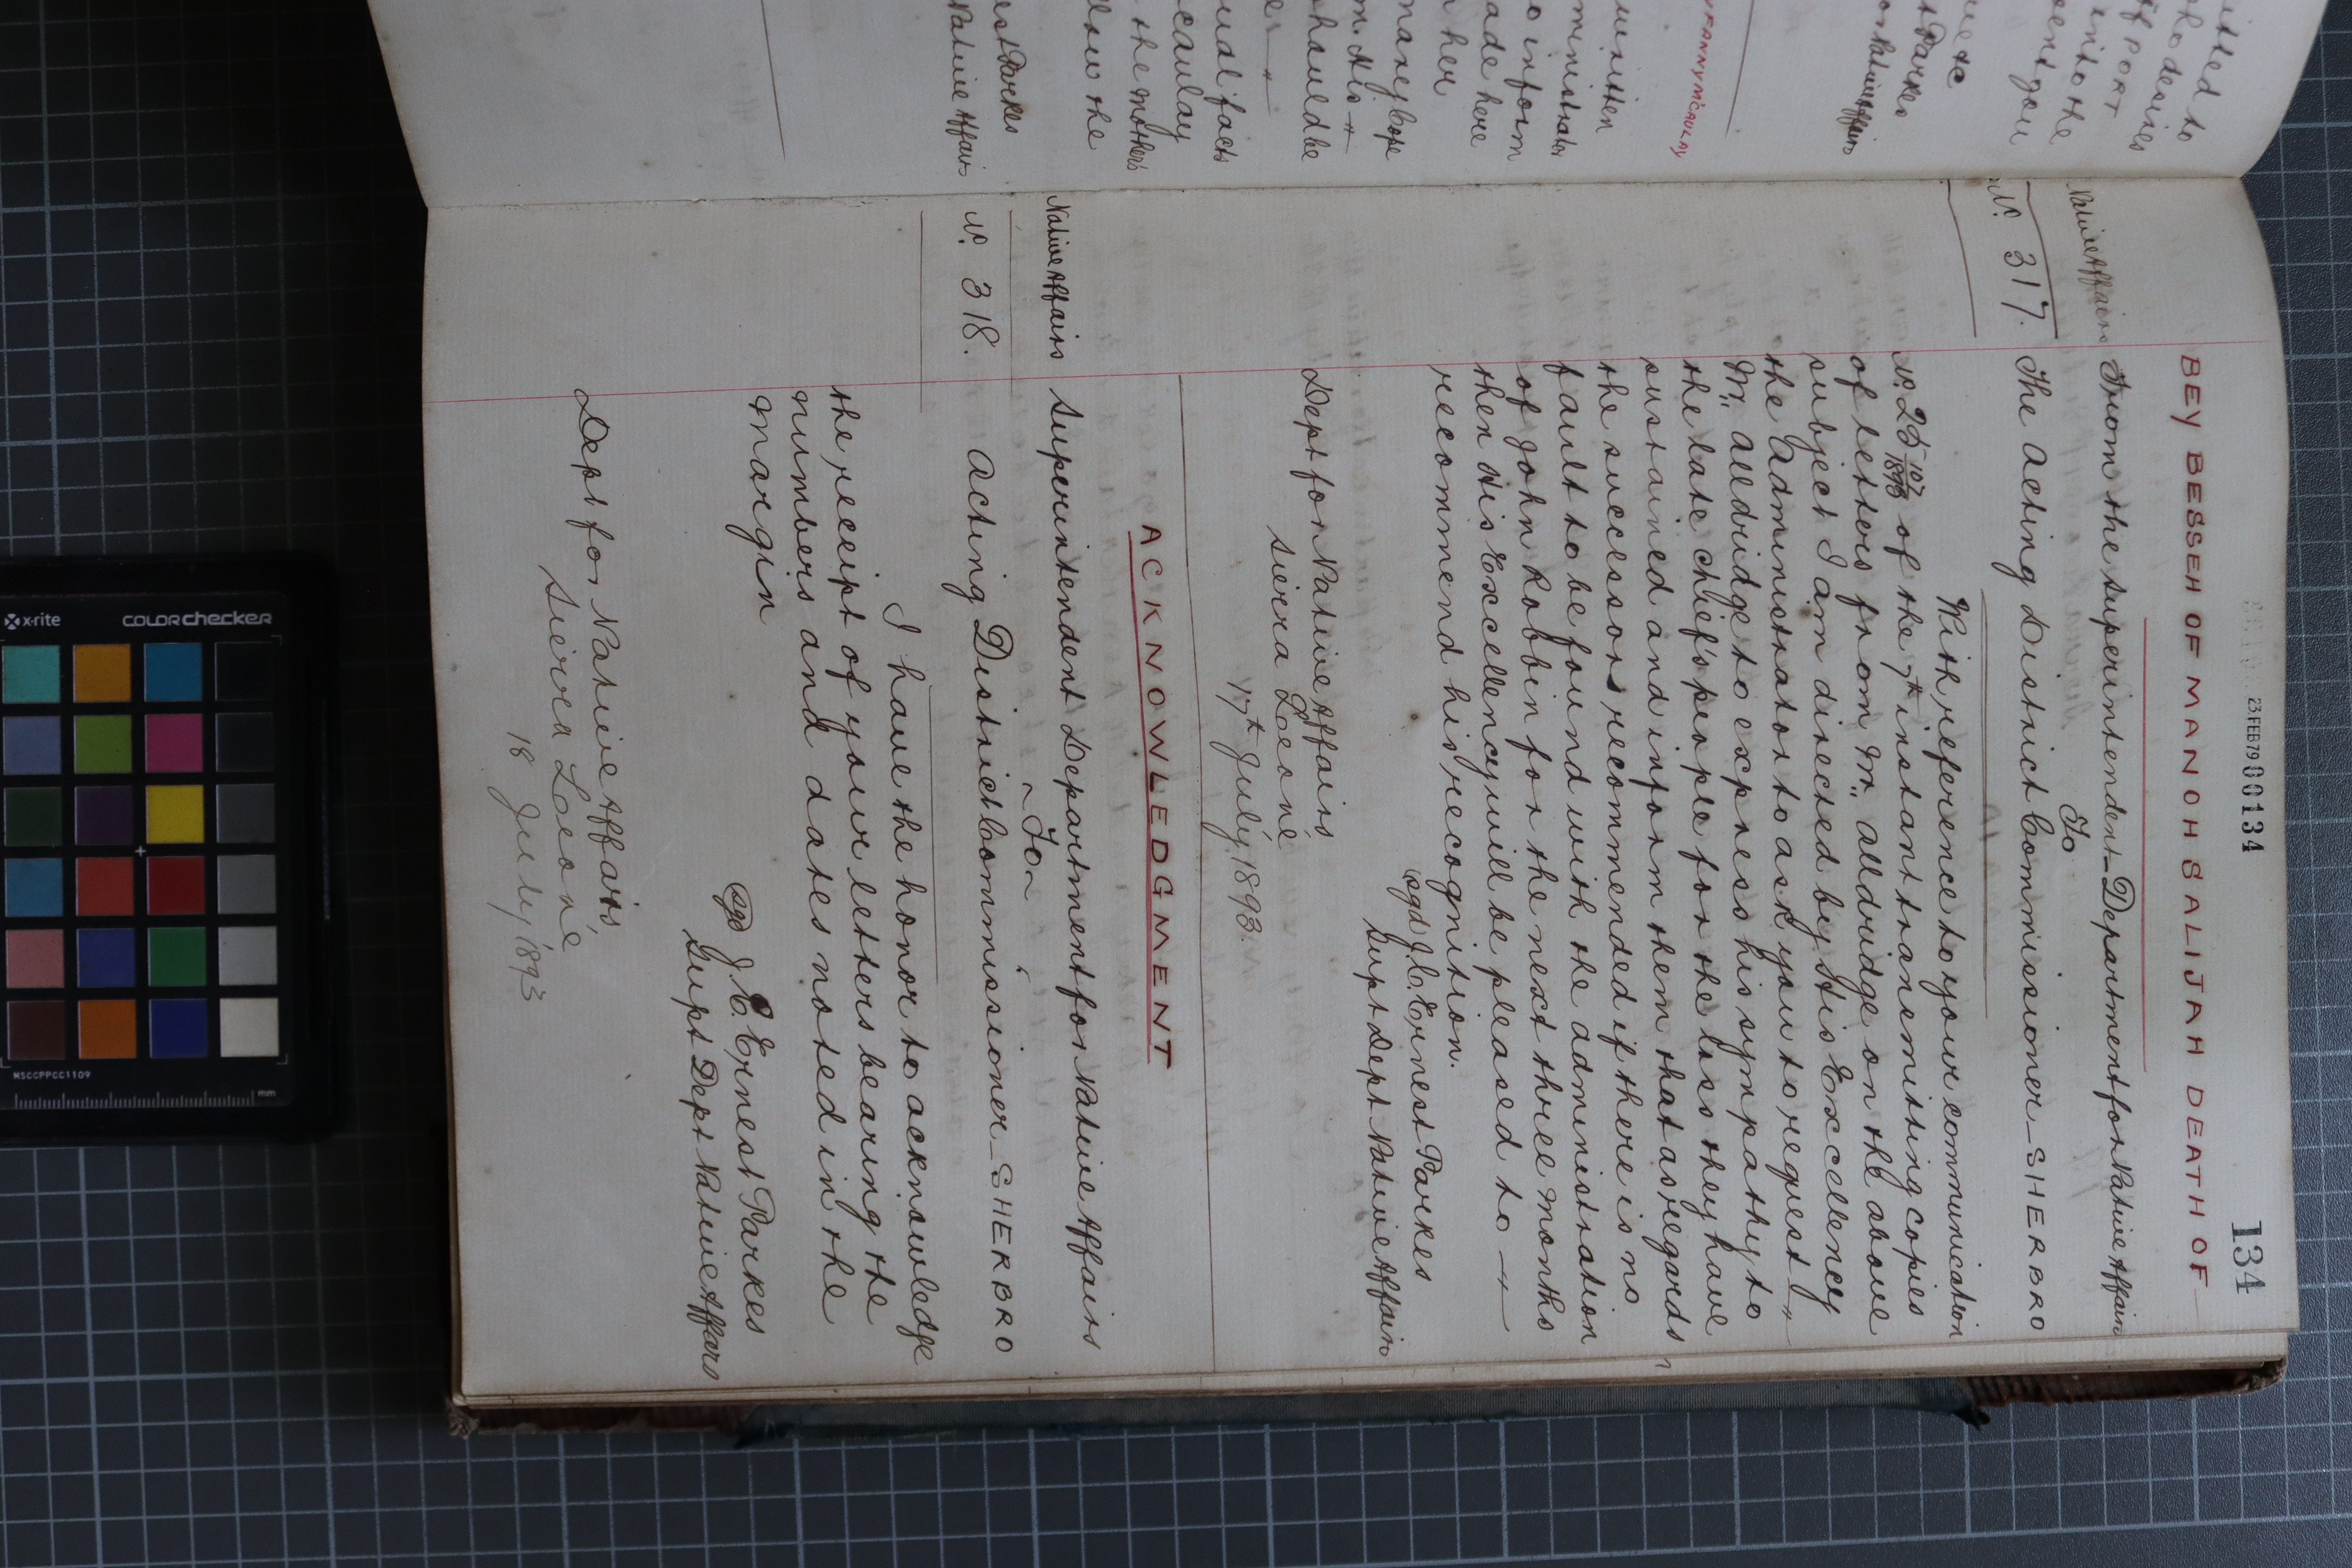 23 FEB 79 00134
134
BEY BESSEH OF MANOH SALIJAH DEATH OF
Native Affairs
From the Superintendent Department for Native Affairs
To
Nº 317.
The Acting District Commissioner SHERBRO
With reference to your communication
Nº 25 107/1893 of the 7th instant transmitting copies
of letters from Mr. Alldridge on the above
subject I am directed by His Excellency
the Administrator to ask you to request
Mr. Alldridge to express his sympathy to
the late chief's people for the loss they have
sustained and inform them that as regards
the successor recommended if there is no
fault to be found with the administration
of John Robbin for the next three months
then His Excellency will be pleased to
recommend his recognition.
(sgd J. C. Ernest Parkes
Supt Dept Native Affairs
Dept for Native Affairs
Sierra Leone
17th July 1893.
ACKNOWLEDGMENT
Native Affairs
Superintendent Department for Native Affairs
~ To ~
Nº 318.
Acting District Commissioner SHERBRO
I have the honor to acknowledge
the receipt of your letters bearing the
numbers and dates noted in the
margin
(sgd J. C. Ernest Parkes
Supt Dept Native Affairs
Dept for Native Affairs,
Sierra Leone
18 July 1893
itted to
who desires
of PORT
into the
sent you
t Parkes
or Native Affairs
FANNY MCAULAY
ministrator
o inform
ade here
n her
money Cope
m. His
should be
ual facts
caulay
the mother's
dow the
est Parkes
Native Affairs
x-rite
colorchecker
MSCCPPCC1109
mm